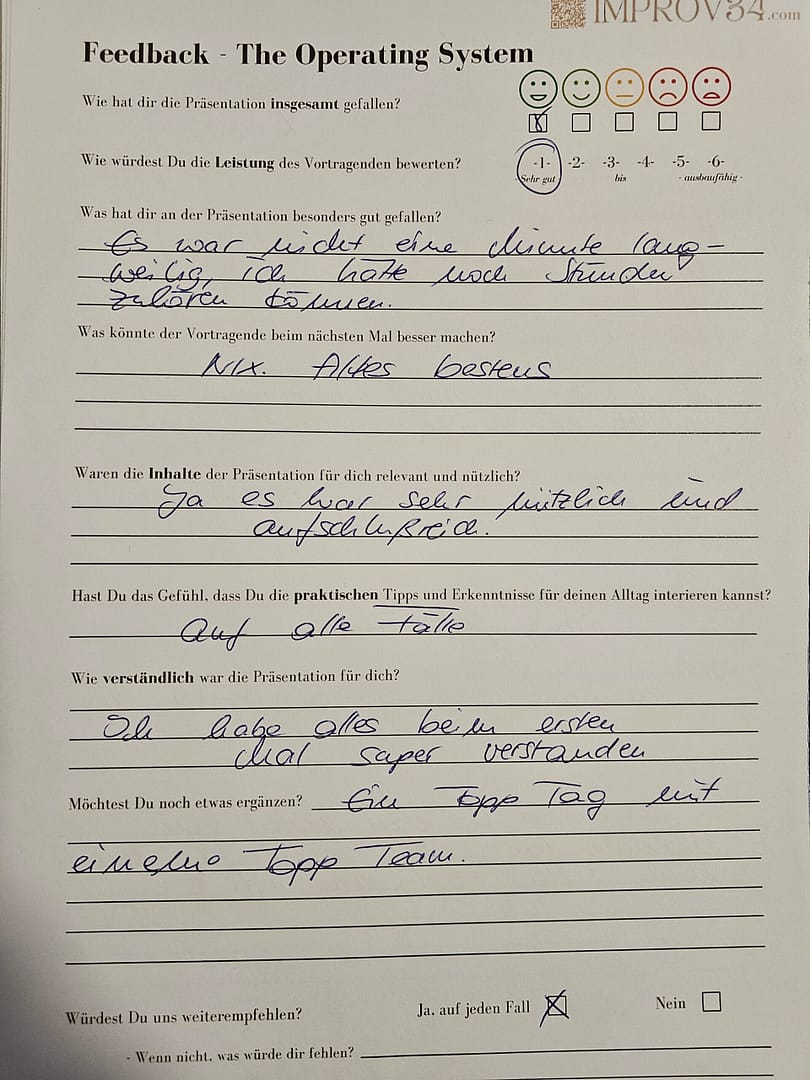 IMPROV34.com
Feedback - The Operating System
Wie hat dir die Präsentation insgesamt gefallen?
Wie würdest Du die Leistung des Vortragenden bewerten? -1- -2- -3- -4- -5- -6-
Sehr gut bis - ausbaufähig -
Was hat dir an der Präsentation besonders gut gefallen?
Es war nicht eine Minute lang-
weilig, ich hätte noch Stunden
zuhören können.
Was könnte der Vortragende beim nächsten Mal besser machen?
Nix. Alles bestens
Waren die Inhalte der Präsentation für dich relevant und nützlich?
Ja es war sehr nützlich und
aufschlußreich.
Hast Du das Gefühl, dass Du die praktischen Tipps und Erkenntnisse für deinen Alltag interieren kannst?
Auf alle Fälle
Wie verständlich war die Präsentation für dich?
Ich habe alles beim ersten
Mal super verstanden
Möchtest Du noch etwas ergänzen? Ein Topp Tag mit
einem Topp Team.
Würdest Du uns weiterempfehlen? Ja, auf jeden Fall Nein
- Wenn nicht, was würde dir fehlen?